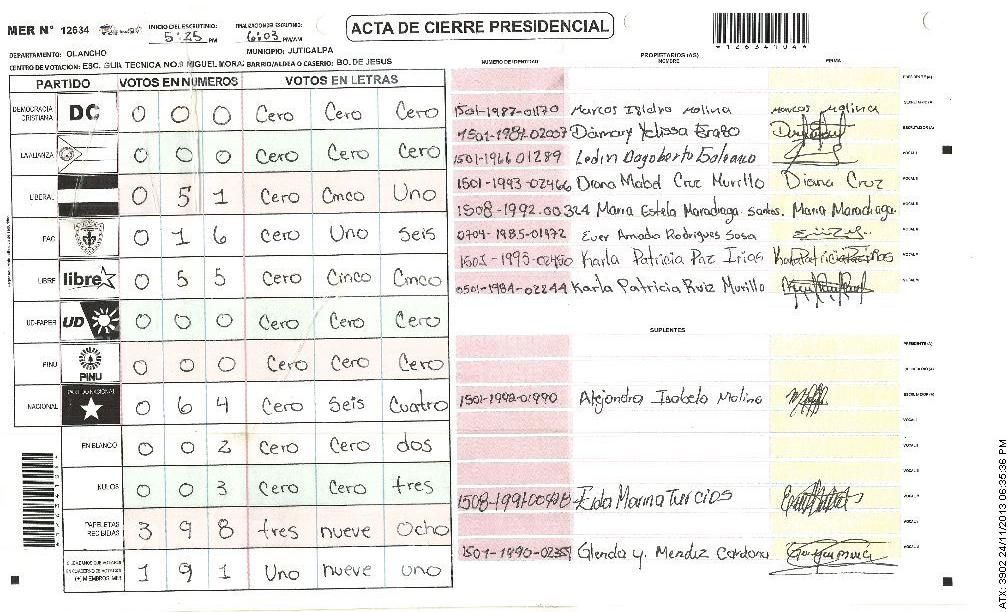 MER N° 12634
INICIO DEL ESCRUTINIO: 5:25 PM
FINALIZACION DE ESCRUTINIO: 6:03 PM/AM
ACTA DE CIERRE PRESIDENCIAL
*126341044*
DEPARTAMENTO: OLANCHO
MUNICIPIO: JUTICALPA
CENTRO DE VOTACION: ESC. GUIA TECNICA NO.9 MIGUEL MORA BARRIO/ALDEA O CASERIO: BO. DE JESUS
PARTIDO VOTOS EN NUMEROS VOTOS EN LETRAS
DEMOCRACIA CRISTIANA DC 0 0 0 Cero Cero Cero
LA ALIANZA 0 0 0 Cero Cero Cero
LIBERAL 0 5 1 Cero Cinco Uno
PAC 0 1 6 Cero Uno Seis
LIBRE libre 0 5 5 Cero Cinco Cinco
UD-FAPER UD 0 0 0 Cero Cero Cero
PINU PINU 0 0 0 Cero Cero Cero
NACIONAL PARTIDO NACIONAL 0 6 4 Cero Seis Cuatro
EN BLANCO 0 0 2 Cero Cero dos
NULOS 0 0 3 Cero Cero tres
PAPELETAS RECIBIDAS 3 9 8 tres nueve Ocho
CIUDADANOS QUE VOTARON (+) MIEMBROS MER 1 9 1 Uno nueve uno
PROPIETARIOS (AS)
NUMERO DE IDENTIDAD NOMBRE FIRMA
PRESIDENTE(A)
1501-1987-01170 Marcos Isidro Molina Marcos Molina SECRETARIO(A)
1501-1981-02007 Damary Yelissa ESCRUTADOR(A)
1501-1966 01289 Ledin Dagoberto VOCAL I
1501-1993-02466 Diana Mabel Cruz Murillo Diana Cruz VOCAL II
1508-1992-00324 Maria Estela Maradiaga Santos. Maria Maradiaga.
0704-1985-01472 Ever Amado Rodrigues Sosa
1501-1995-02450 Karla Patricia Paz Irias Karla Patricia Paz Irias
0501-1984-02244 Karla Patricia Ruiz Murillo
SUPLENTES
PRESIDENTE(A)
SECRETARIO(A)
1501-1992-01990 Alejandra Isabela Molina ESCRUTADOR(A)
VOCAL I
VOCAL II
Elda Marina Turcios
1501-1990-02351 Glenda y. Mendez Cardona
ATX: 3902 24/11/2013 06:35:36 PM